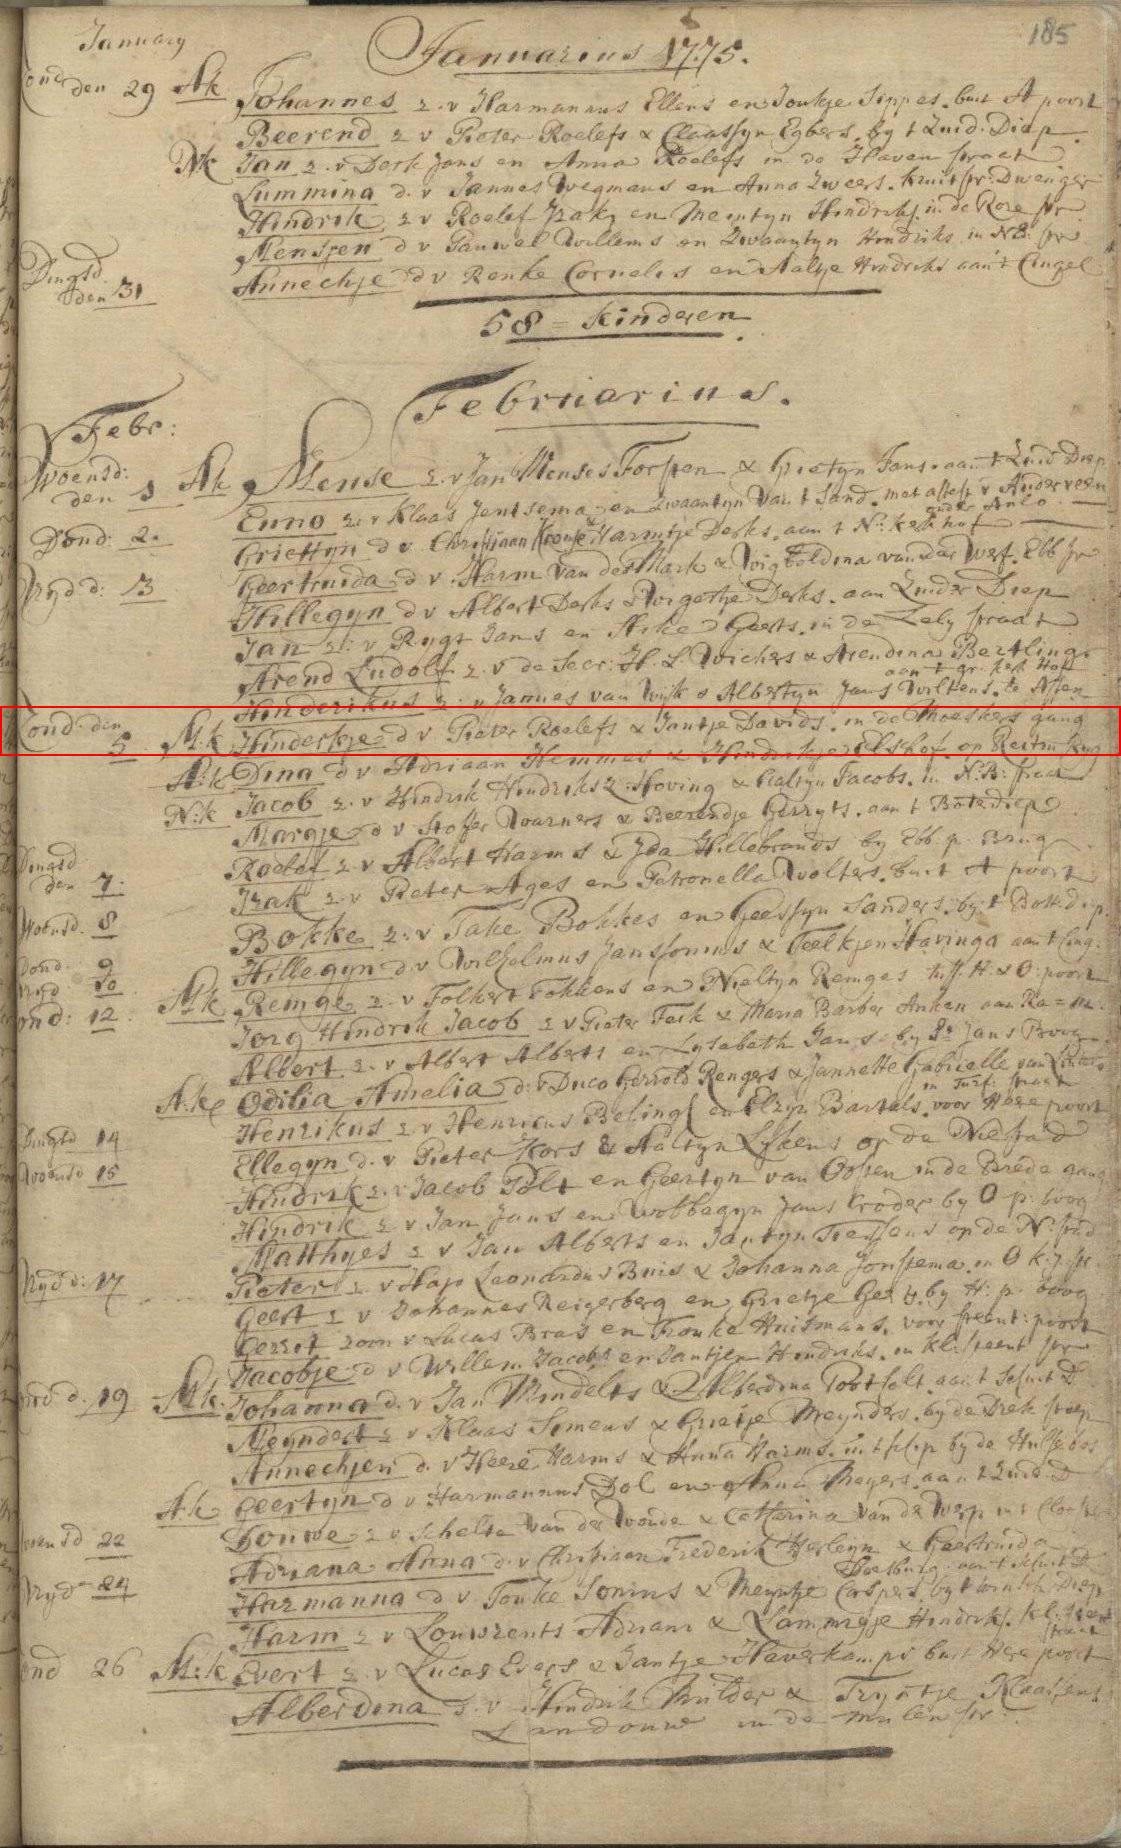 185
January
Januarius 1775.
den 29 Ak Johannes z. v Harmannus Ellens en Foukje Seppes. buit A poort
Beerend z v Pieter Roelefs & Claassyn Egbers. by t Zuid. Diep
Nk Jan z. v Derk Jans en Anna Roelefs in de Haven straet
Lummina d. v Jannes Wegmans en Anna Zweers. Kruit str. Dwenger
Hindrik z v Roelef Izaks en Meintyn Hindriks. in de Roze str
d v Pauwel Willems en Zwaantyn Hindriks in NB: str
Dingsd den 31 Annechje d v Renke Cornelis en Aaltje Hindriks aan't Cingel
58 = Kinderen
Februarius.
Febr:
Woensd: den 1 Ak Mense z. v Jan Menses Forsten & Grietyn Jans. aan t Zuid Diep
Enno z. v Klaas Jentsema en Zwaantyn Van't Sand. met attest v Anderveen
onder Anlo
Dond: 2. Griettyn d v Christiaan Krouse & Harmtje Derks. aan t N: kerkhof
Vryd: 3 Geertruida d v. Harm Van der Mark & Wigboldina van der Werf. Ebb str
Hillegyn d v Albert Derks & Derks. aan Zuider Diep
Jan z. v Jans en Geerts. in de Lely straat
Arend Ludolf z. v de Secr: H. L Wichers & Arendina Bertling.
aan t gr. kerk Hoff
Hinderikus z. v Jannes van Wyk & Albertyn Jans Wiltens. te Assen
Sond: den 5 M:k Hinderkje d v Pieter Roelefs & Jantje Davids. in de Moeskers gang
A:k Dina d v Adriaan Hemmes & Hindrikje Elshof. op
N:k Jacob z. v Hindrik Hindriks Hoving & Aaltyn Jacobs. in N:B: straat
Margje d v Stoffer Warners & Beerendje Gerryts. aan t Boteediep
Dingsd den 7. Roelef z v Albert Harms & Yda Hillebrands by Ebb. p. Brug
Izak z. v Pieter Ages en Petronella Wolters. buit A poort
Woensd. 8 Bokke z. v Take Bokkes en Geessyn Sanders. by t Bott. diep.
Dond. 9 Hillegyn d. v Wilhelmus Janssonius & Teelkjen Havinga aan t Cing.
Vryd 10
Sond: 12 Mk Remge z. v Folkert Fokkens en Nieltyn Remges tuss. H. & O: poort
Jorg Hindrik Jacob z v Pieter Feik & Maria Barber Anken aan
Albert z. v Albert Alberts en Lysabeth Jans. by St Jans Broog
A:k Odilia Amelia d. v Duco Gerrold Rengers & Jannette Gabrielle van
in Turf: straat
Henrikus z v Henricus Beling en Elzyn Bartels. voor Here poort
Dingsd 14 Ellegyn d. v Pieter Kors & Aaltyn Lykens op de Niestad
Woensd 15 Hindrik z. v Jacob Polt en Geertyn van Oossen in de Brede gang
Hindrik z v Jan Jans en Wobbegyn Jans Kroder by O p. boog
Matthyes z v Jan Alberts en Jantyn op de N: stad
Vryd: 17 Pieter z. v Hajo Leonardus Buis & Johanna in O k: str.
Geert z v Johannes Reigersberg en Grietje by H: p. boog
Gerrit zoon v Lucas Bras en Frouke Huismans. voor steent: poort
Jacobje d v Willem Jacobs en Jantjen Hindriks. in kl: steent str
19 Mk. Johanna d. v Jan Mindelts & Alberdina Portfolt. aan t Schuit D
Meyndert z v Klaas Simens & Grietje Meynders. by de
Annechjen d. v Heere Harms & Anna Harms. by de
A:k Geertyn d v Harmannus Dol en Anna Meyers. aan t Zuid: D
Woensd 22 Douwe z v Schelte Van der Woude & Catharina Van de Werp
Adriana Anna d. v Christiaan Frederik Herleyn & Geertruida
Doesburg. aan t Schuit D
Vryd 24 Harmanna d v Fouke Sonius & Meyntje Caspers. by t Diep
Harm z v Louwrents Adriani & Lammegje Hindriks. kl: steent
straat
Sond 26 M:k Evert z. v Lucas Evers & Jantje Haverkamps buit Here poort
Alberdina d. v Hindrik Mulder & Tryntje Klaassens
Landouwe in de Mulen str.